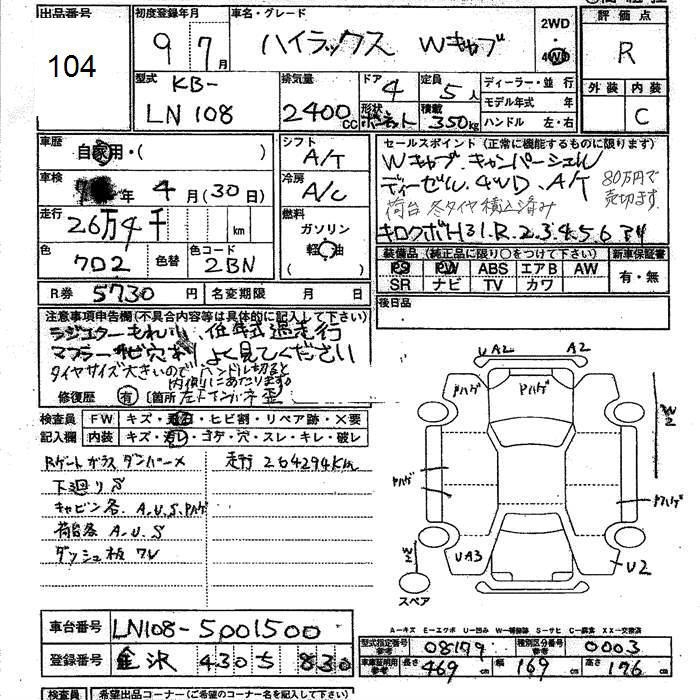 出品番号
104
初度登録年月
9年 7月
車名・グレード
ハイラックス Wキャブ
2WD
4WD
評価点
R
外装 内装
C
型式
KB-
LN108
排気量
2400cc
ドア
4
形状
ボーネット
定員
5人
積載
350kg
ディーラー・並行
モデル年式 年
ハンドル 左・右
車歴
自家用・( )
車検
年 4月(30日)
走行
26万4千 km
色
7D2
色替
色コード
2BN
シフト
A/T
冷房
A/C
燃料
ガソリン
軽油
R券 5730円
名変期限 月 日
セールスポイント (正常に機能するものに限ります)
Wキャブ.キャンパーシェル
ディーゼル.4WD.A/T
80万円で
売切ります.
荷台 冬タイヤ積込済み
キロクボH31.R.2.3.4.5.6 34
装備品 (純正品に限り〇をつけて下さい)
PS PW ABS エアB AW
SR ナビ TV カワ
新車保証書
有・無
後日品
注意事項申告欄(不具合内容等は具体的に記入して下さい)
ラジエターもれ 低年式過走行
マフラーサビ穴有 よく見てください
タイヤサイズ大きいのでハンドル切ると
内側にあたります
修復歴 有 [箇所
検査員
記入欄
FW キズ・飛石・ヒビ割・リペア跡・X要
内装 キズ・汚レ・コゲ・穴・スレ・キレ・破レ
Rゲートガラスダンパーメ
走行 264294Km
下廻りS
キャビン各 A.U.S.Pハゲ
荷台各 A.U.S
ダッシュ板 ワレ
UA2 A2
Pハゲ Pハゲ
W2
Pハゲ
Pハゲ
W2
UA3
U2
スペア
A－キズ E－エクボ U－凹み W－補修跡 S－サビ C－腐食 XX－交換済
車台番号 LN108-5001500
登録番号 金沢 430 ち 830
型式指定番号
参考
08179
種別区分番号
参考
0003
車庫証明用
参考
長さ 469cm 幅 169cm 高さ 176cm
検査員
希望出品コーナー(ご希望のコーナー名を記入して下さい)